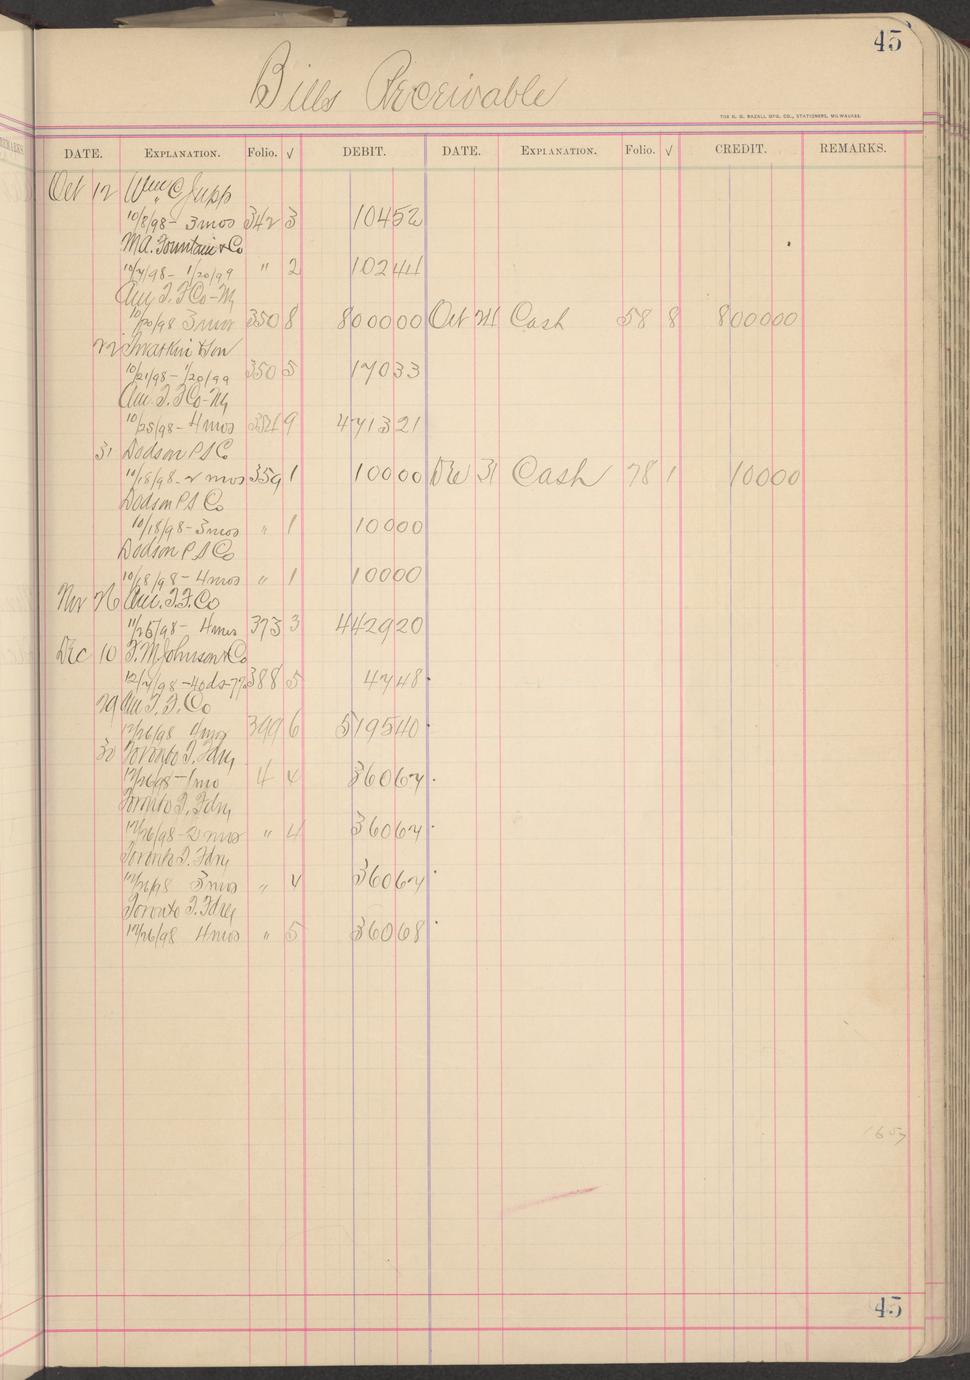 45
Bills Receivable
THE H. G. RAZALL MFG. CO., STATIONERS, MILWAUKEE.
DATE. EXPLANATION. Folio. √ DEBIT. DATE. EXPLANATION. Folio. √ CREDIT. REMARKS.
Oct 12 Wm C Jupp
10/8/98 - 3 mos 342 3 104 52
M.A. Fountain & Co
10/4/98 - 1/20/99 " 2 102 44
Am T. F Co - Mg
10/20/98 3 mos 350 8 8000 00 Oct 24 Cash 58 8 8000 00
22 & Son
10/21/98 - 1/20/99 350 5 170 33
Am. T. F Co - Mg
10/25/98 - 4 mos 354 9 4713 21
31 Dodson P S Co
10/18/98 - 2 mos 359 1 100 00 Dec 31 Cash 78 1 100 00
Dodson P S Co
10/18/98 - 3 mos " 1 100 00
Dodson P S Co
10/18/98 - 4 mos " 1 100 00
Nov 26 Am. T. F. Co
11/25/98 - 4 mos 373 3 4429 20
Dec 10 F. M. Johnson & Co
12/7/98 - 40 ds - 7% 388 5 47 48
29 Am T. F. Co
12/26/98 4 mos 399 6 5195 40
30 Toronto T. Fdry
12/26/98 - 1 mo 4 4 360 67
Toronto T. Fdry
12/26/98 - 2 mos " 4 360 67
Toronto T. Fdry
12/26/98 3 mos " 4 360 67
Toronto T. Fdry
12/26/98 4 mos " 5 360 68
45